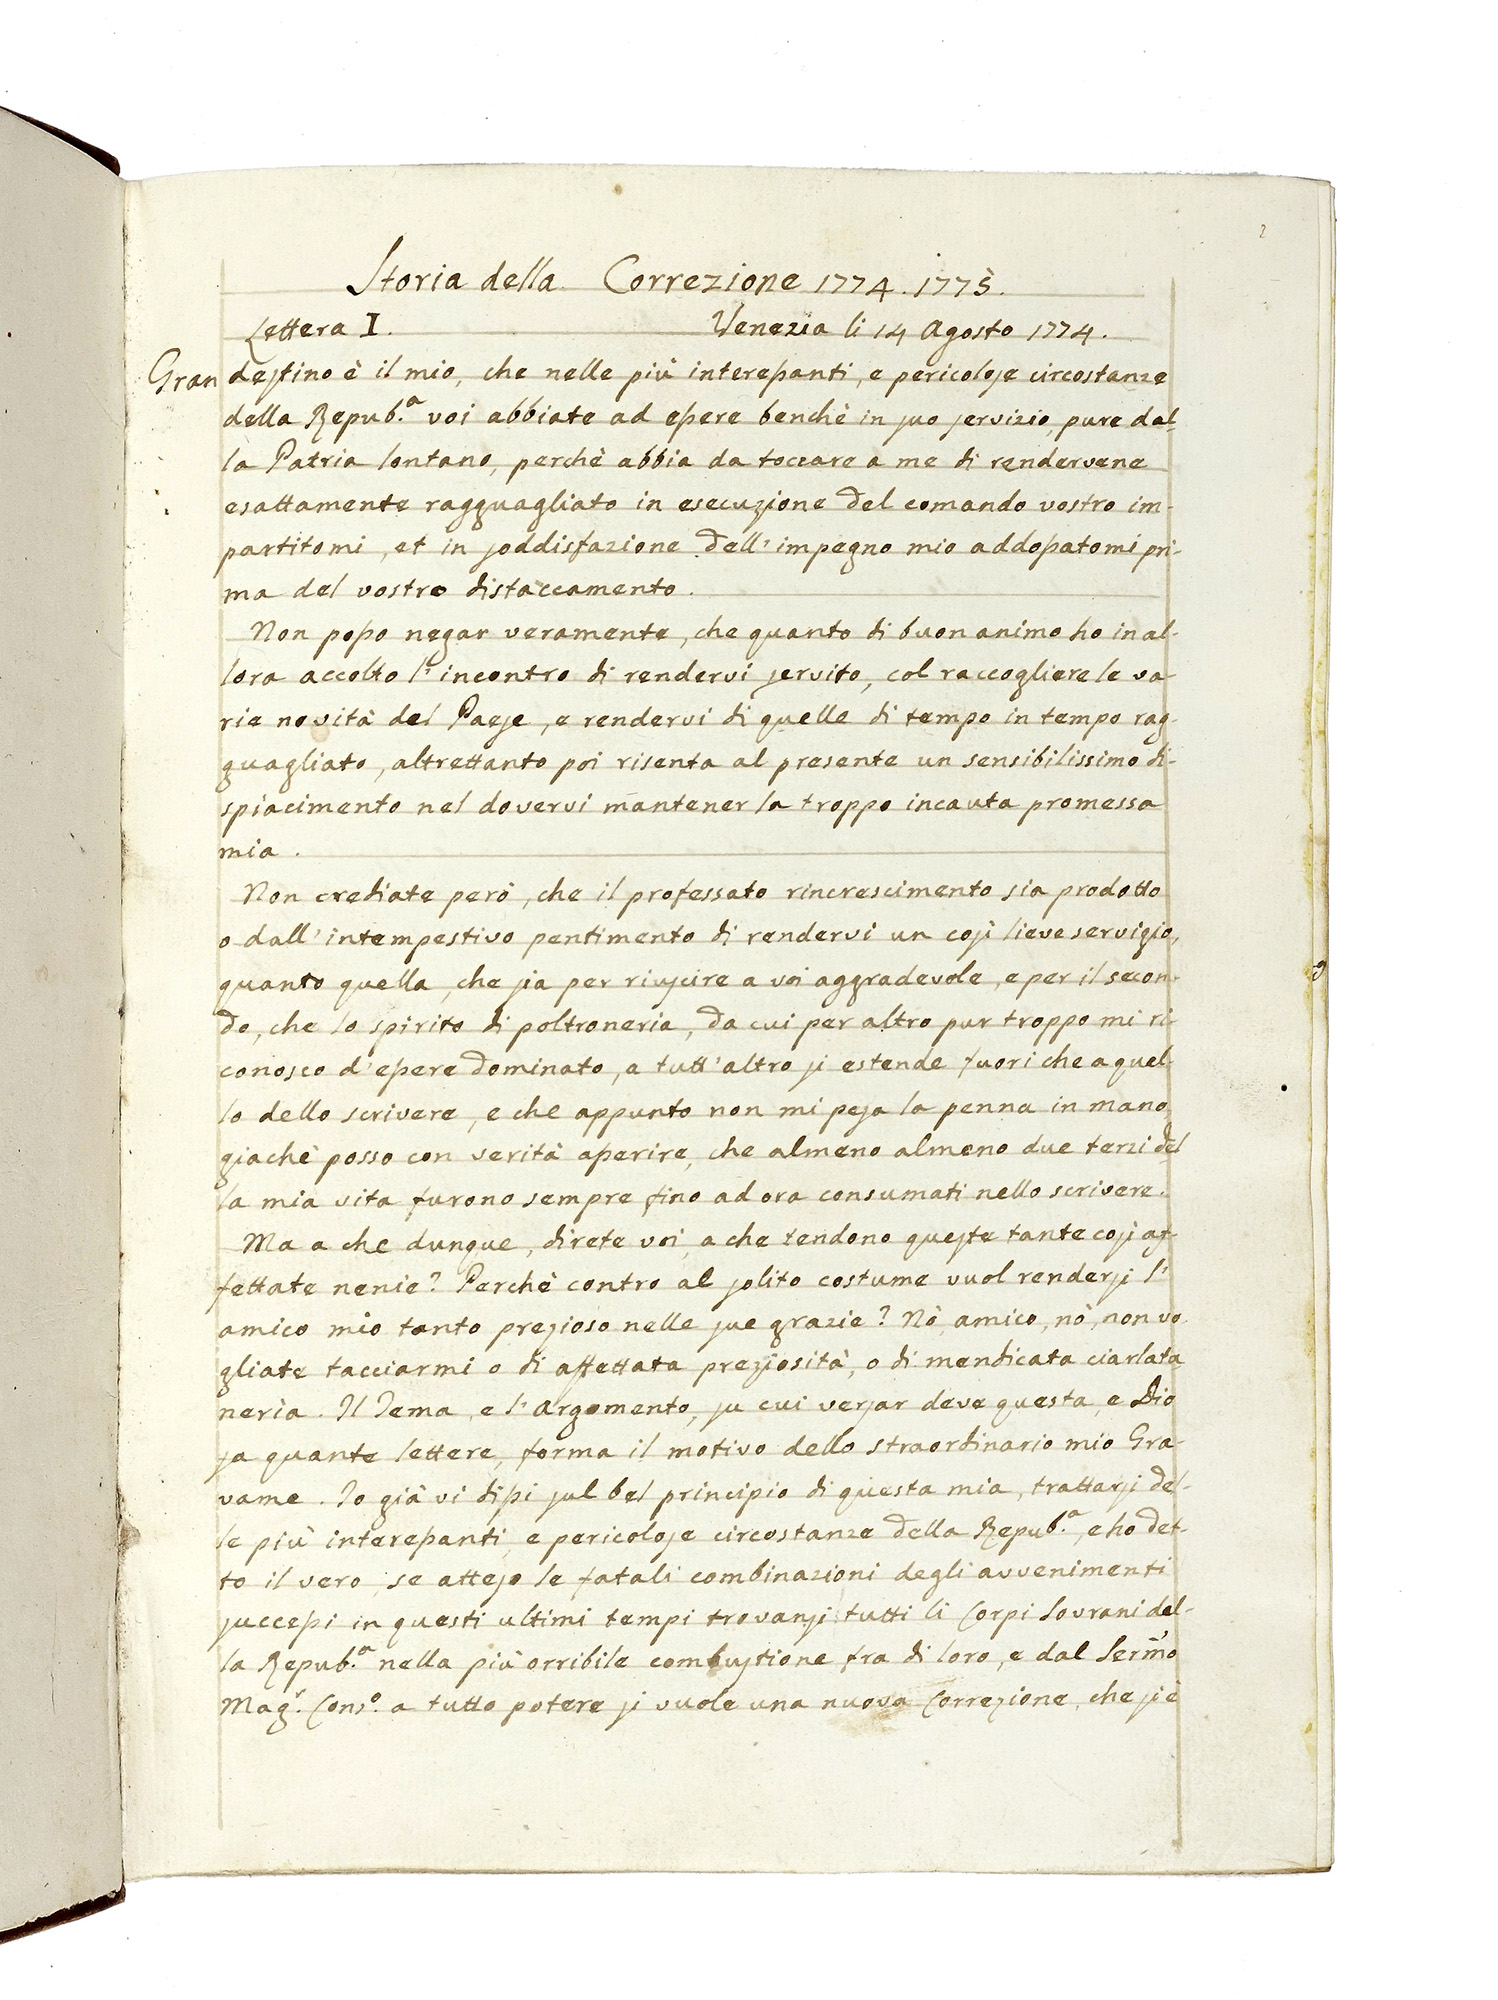 Storia della Correzione 1774. 1775.
Lettera I. Venezia li 14 Agosto 1774.
Gran destino è il mio, che nelle più interessanti, e pericolose circostanze
della Repub.a voi abbiate ad essere benchè in suo servizio, pure dal-
la Patria lontano, perchè abbia da toccare a me di rendervene
esattamente ragguagliato in esecuzione del comando vostro im-
partitomi, et in soddisfazione dell' impegno mio addossatomi pri-
ma del vostro distaccamento.
Non posso negar veramente, che quanto di buon animo ho in al-
lora accolto l' incontro di rendervi servito, col raccogliere le va-
rie novità del Paese, e rendervi di quelle di tempo in tempo rag-
guagliato, altrettanto poi risenta al presente un sensibilissimo di-
spiacimento nel dovervi mantener la troppo incauta promessa
mia.
Non crediate però, che il professato rincrescimento sia prodotto
o dall' intempestivo pentimento di rendervi un così lieve servigio,
quanto quella, che sia per riuscire a voi aggradevole, e per il secon-
do, che lo spirito di poltroneria, da cui per altro pur troppo mi ri-
conosco d' essere dominato, a tutt' altro si estende fuori che a quel-
lo dello scrivere, e che appunto non mi pesa la penna in mano,
giachè posso con verità asserire, che almeno almeno due terzi del-
la mia vita furono sempre fino ad ora consumati nello scrivere.
Ma a che dunque, direte voi, a che tendono queste tante così af-
fettate nenie? Perchè contro al solito costume vuol rendersi l'
amico mio tanto prezioso nelle sue grazie? Nò, amico, nò, non vo-
gliate tacciarmi o di affettata preziosità, o di mendicata ciarlata-
neria. Il Tema, e l' Argomento, su cui versar deve questa, e Dio
sa quante lettere, forma il motivo dello straordinario mio Gra-
vame. Io già vi dissi sul bel principio di questa mia, trattarsi del-
le più interessanti, e pericolose circostanze della Repub.a, e ho det-
to il vero, se atteso le fatali combinazioni degli avvenimenti
successi in questi ultimi tempi trovansi tutti li Corpi Sovrani del-
la Repub.a nella più orribile combustione fra di loro, e dal Sermo
Magr. Conso. a tutto potere si vuole una nuova Correzione, che si è